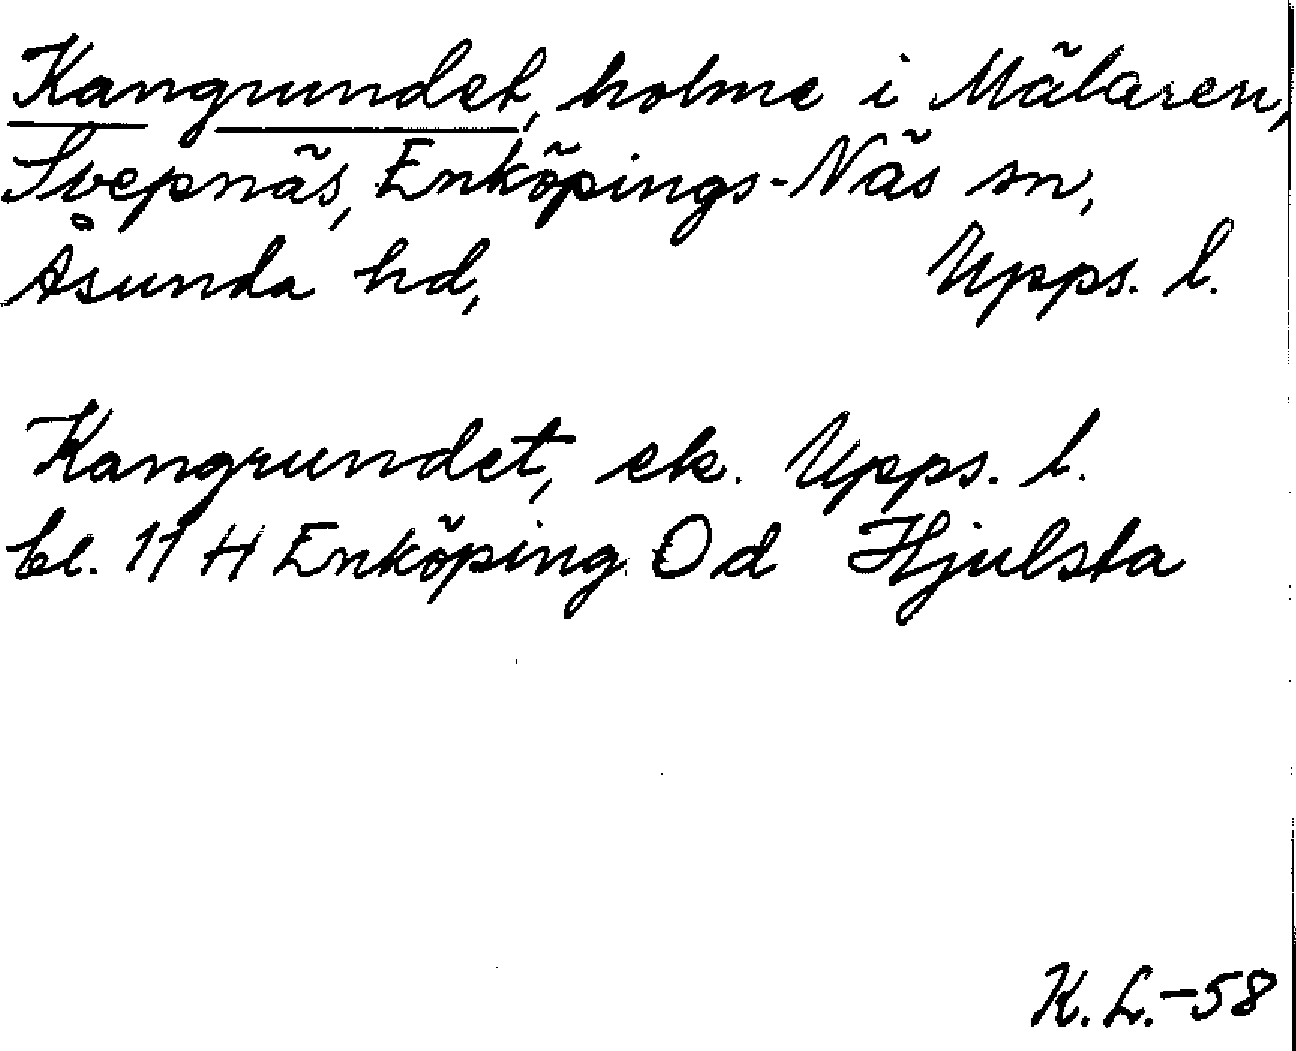 Kangrundet, holme i Mälaren,
Svepnäs, Enköpings-Näs sn,
Åsunda hd, Upps. l.
Kangrundet, ek. Upps. l.
bl. 11 H Enköping Od Hjulsta
K. L.-58